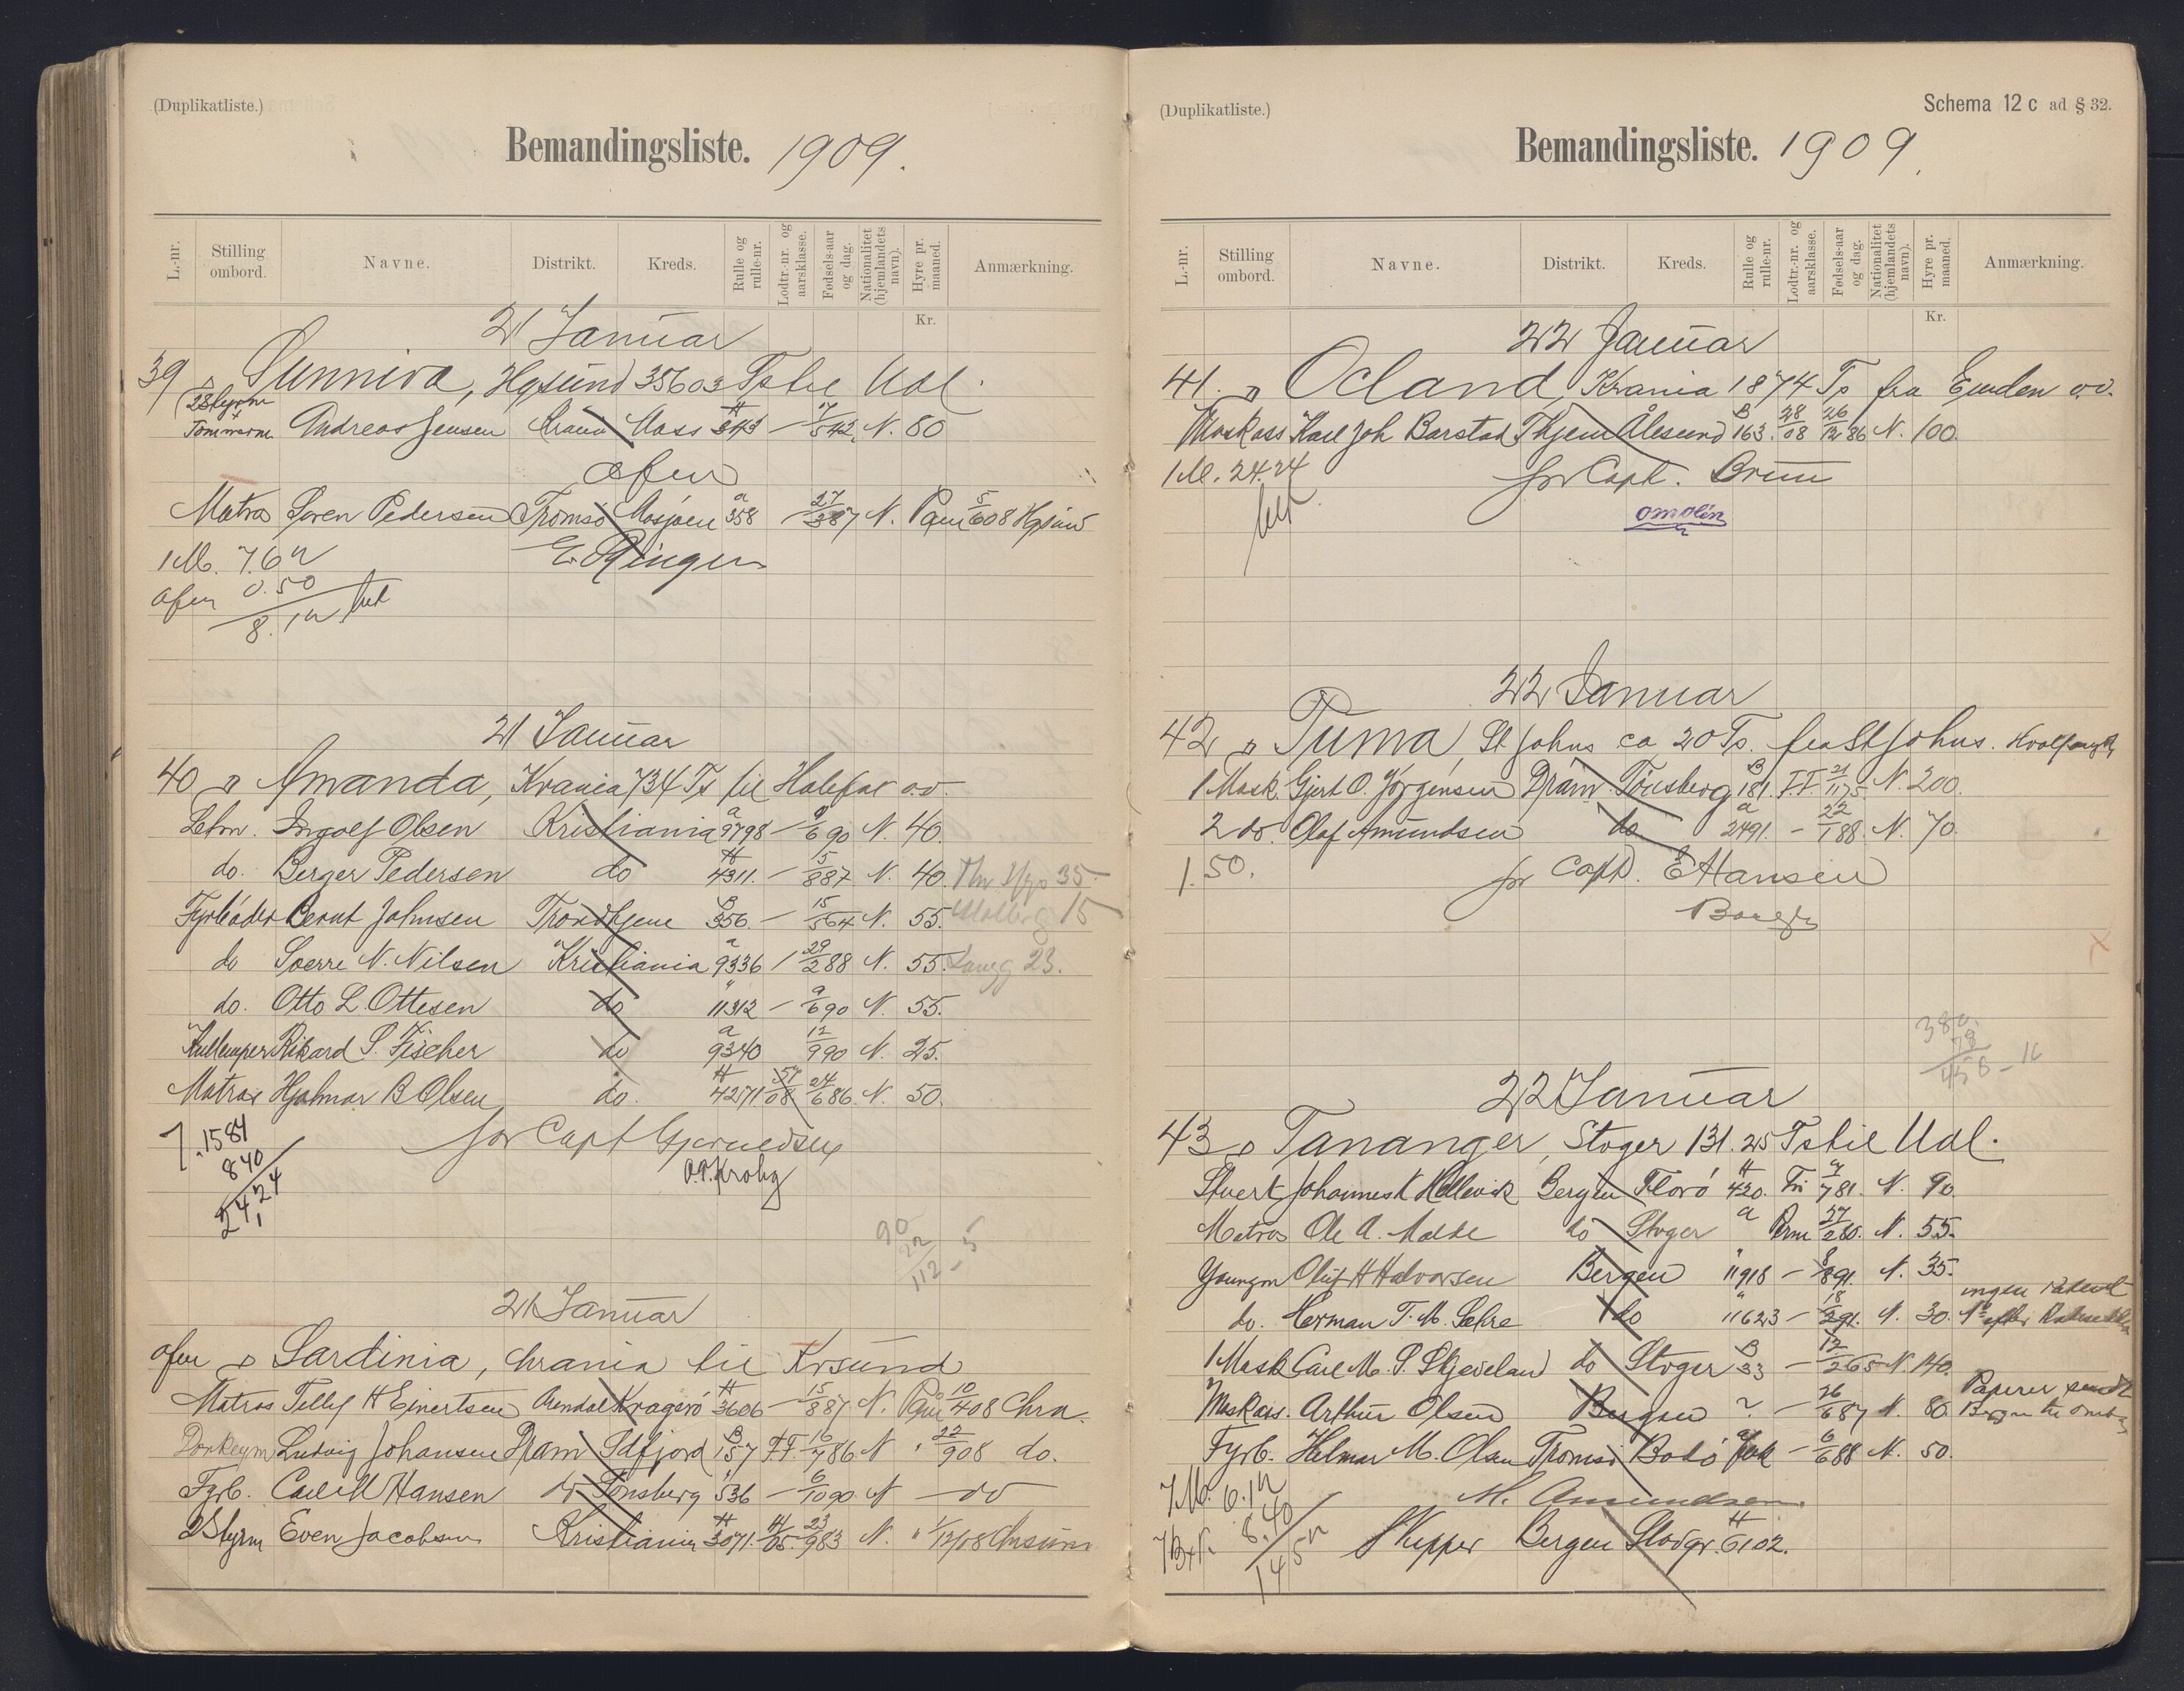 (Duplikatliste.)
Bemandingsliste. 1909.
L.-nr. Stilling ombord. Navne. Distrikt. Kreds. Rulle og rulle-nr. Lodtr.-nr. og aarsklasse. Fødsels-aar og dag. Nationalitet (hjemlandets navn). Hyre pr. maaned. Anmærkning.
Kr.
21 Januar
39 Sunniva, Hgsund 356 03 Ts til Udl.
2 Styrm
Tømmerm Andreas Jensen Krania Moss H 343 N. 80
afm
Matros Søren Pedersen Tromsø Mosjøen a 358 - 27/3 87 N. Paam 5/6 08 Hgsund
1 M. 7.62
afm 0.50
8.12
21 Januar
40 Amanda, Krania 734 Ts til Halifax o.v.
Letm. Ingolf Olsen Kristiania a 9798 - 9/6 90 N. 40.
do. Berger Pedersen do H 4311. - 5/8 87 N. 40.
Fyrbøder Bernt Johnsen Trondhjem B 356. - 15/5 64 N. 55.
do Sverre N. Nilsen Kristiania a 9336 / 29/2 88 N. 55.
do. Otto L. Ottesen do " 11312 - 9/6 90 N. 55.
Kullemper Rikard S. Fischer do a 9340 12/9 90 N. 25.
Matros Hjalmar B Olsen do. H 4271 57/08 24/6 86 N. 50.
7. 15 84
8 40
24,24
for Capt
O.P. Krohg
90
22
112 - 5
21 Januar
afm Sardinia, Chrania til Krsund
Matros Tellef H Einertsen Arendal Kragerø H 3606 - 15/8 87 N. Paam 10/4 08 Chra.
Donkeym Ludvig Johansen Dram Sdfjord B 157 F.F. 16/7 86 N " 22/9 08 do.
Fyrb. Carl M Hansen do Tønsberg " 536 - 6/10 90 N - do
2 Styrm Even Jacobsen Kristiania H 3071. 14/05 - 23/9 83 N. " 1/12 08 Chrsunn
(Duplikatliste.)
Schema 12 c ad § 32.
Bemandingsliste. 1909.
L.-nr. Stilling ombord. Navne. Distrikt. Kreds. Rulle og rulle-nr. Lodtr.-nr. og aarsklasse. Fødsels-aar og dag. Nationalitet (hjemlandets navn). Hyre pr. maaned. Anmærkning.
Kr.
22 Januar
41. Ocland, Krania 1874 Ts fra Emden o.v.
Maskass Karl Joh Barstad Thjem Ålesund B 163. 28/08 26/12 86 N. 100.
1 M. 24.24
for Capt. Bruun
22 Januar
42 Tuma, St Johns ca 20 Ts. fra St Johns. Hvalfangst
1 Mask. Gjert O. Jørgensen Dram Tønsberg B 181. F.F. 21/11 75 N. 200.
2 do. Olaf Amundsen do a 2491. - 22/1 88. N. 70.
1.50.
for Capt. E Hansen
380.
78
458 - 16
22 Januar
43 Tananger, Stvger 131.25 Ts til Udl.
Stuert Johannes K Hellevik Bergen Florø H 420. Fri 7/7 81. N. 90.
Matros Ole A. Malde do Stvger a Perm 27/2 80. N. 55.
Youngm Oluf H Halvorsen Bergen " 11918 - 8/8 91. N. 35.
do. Herman T. M. Sehre do " 11623 - 18/2 91. N. 30.
1 Mask Carl M. S. Skjeveland do Stvger B 33 - 12/2 65 N. 140.
Maskass. Arthur Olsen Bergen ? - 26/6 87 N. 80. Papirer sendt
Fyrb. Helmar M. Olsen Tromsø Bodø - 6/6 88 N. 50.
7 M. 6.12
8.40
14.52
M. Amundsen
Skipper Bergen Stavgr. H 6102.